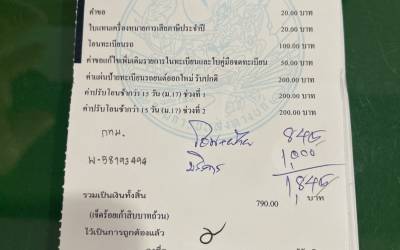 ค่าขอ 20.00 บาท
ใบแทนเครื่องหมายการเสียภาษีประจำปี 20.00 บาท
โอนทะเบียนรถ 100.00 บาท
ค่าขอแก้ไขเพิ่มเติมรายการในทะเบียนและใบคู่มือจดทะเบียน 50.00 บาท
ค่าแผ่นป้ายทะเบียนรถยนต์ออกใหม่ วันปกติ 200.00 บาท
ค่าปรับโอนช้ากว่า 15 วัน (ม.17) ช่วงที่ 1 200.00 บาท
ค่าปรับโอนช้ากว่า 15 วัน (ม.17) ช่วงที่ 2 200.00 บาท
กทม. โอน+ป้าย 845
พ-58193494 บริการ 1,000
1,845
รวมเป็นเงินทั้งสิ้น 790.00 บาท
(เจ็ดร้อยเก้าสิบบาทถ้วน)
ไว้เป็นการถูกต้องแล้ว